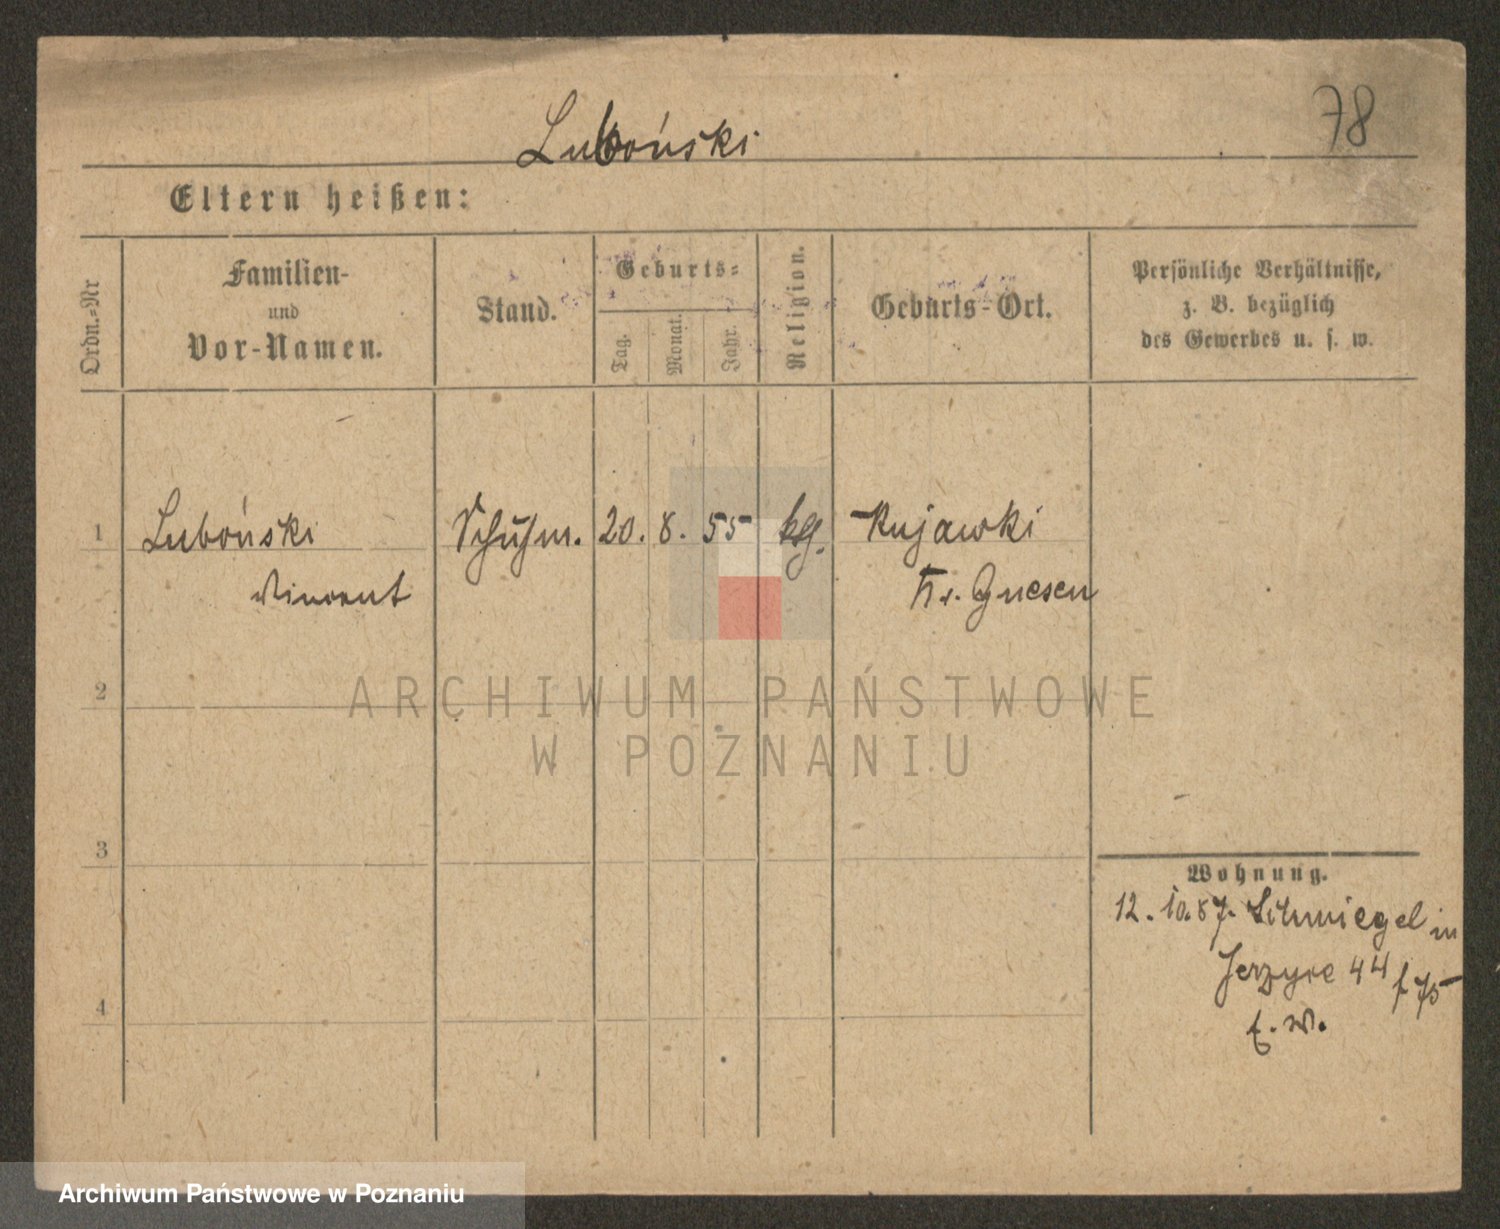 78
Luboński
Eltern heißen:
Ordn.=Nr
Familien-
und
Vor-Namen.
Stand.
Geburts=
Tag.
Monat.
Jahr.
Religion.
Geburts-Ort.
Persönliche Verhältnisse,
z. B. bezüglich
des Gewerbes u. s. w.
1 Luboński Schuhm. 20. 8. 55 ktl. Kujawki
Vincent Kr. Gnesen
2
ARCHIWUM PAŃSTWOWE
W POZNANIU
3
Wohnung.
12. 10. 87. Schmiegel in
Jerzyce 44 f 75
4
E. W.
Archiwum Państwowe w Poznaniu